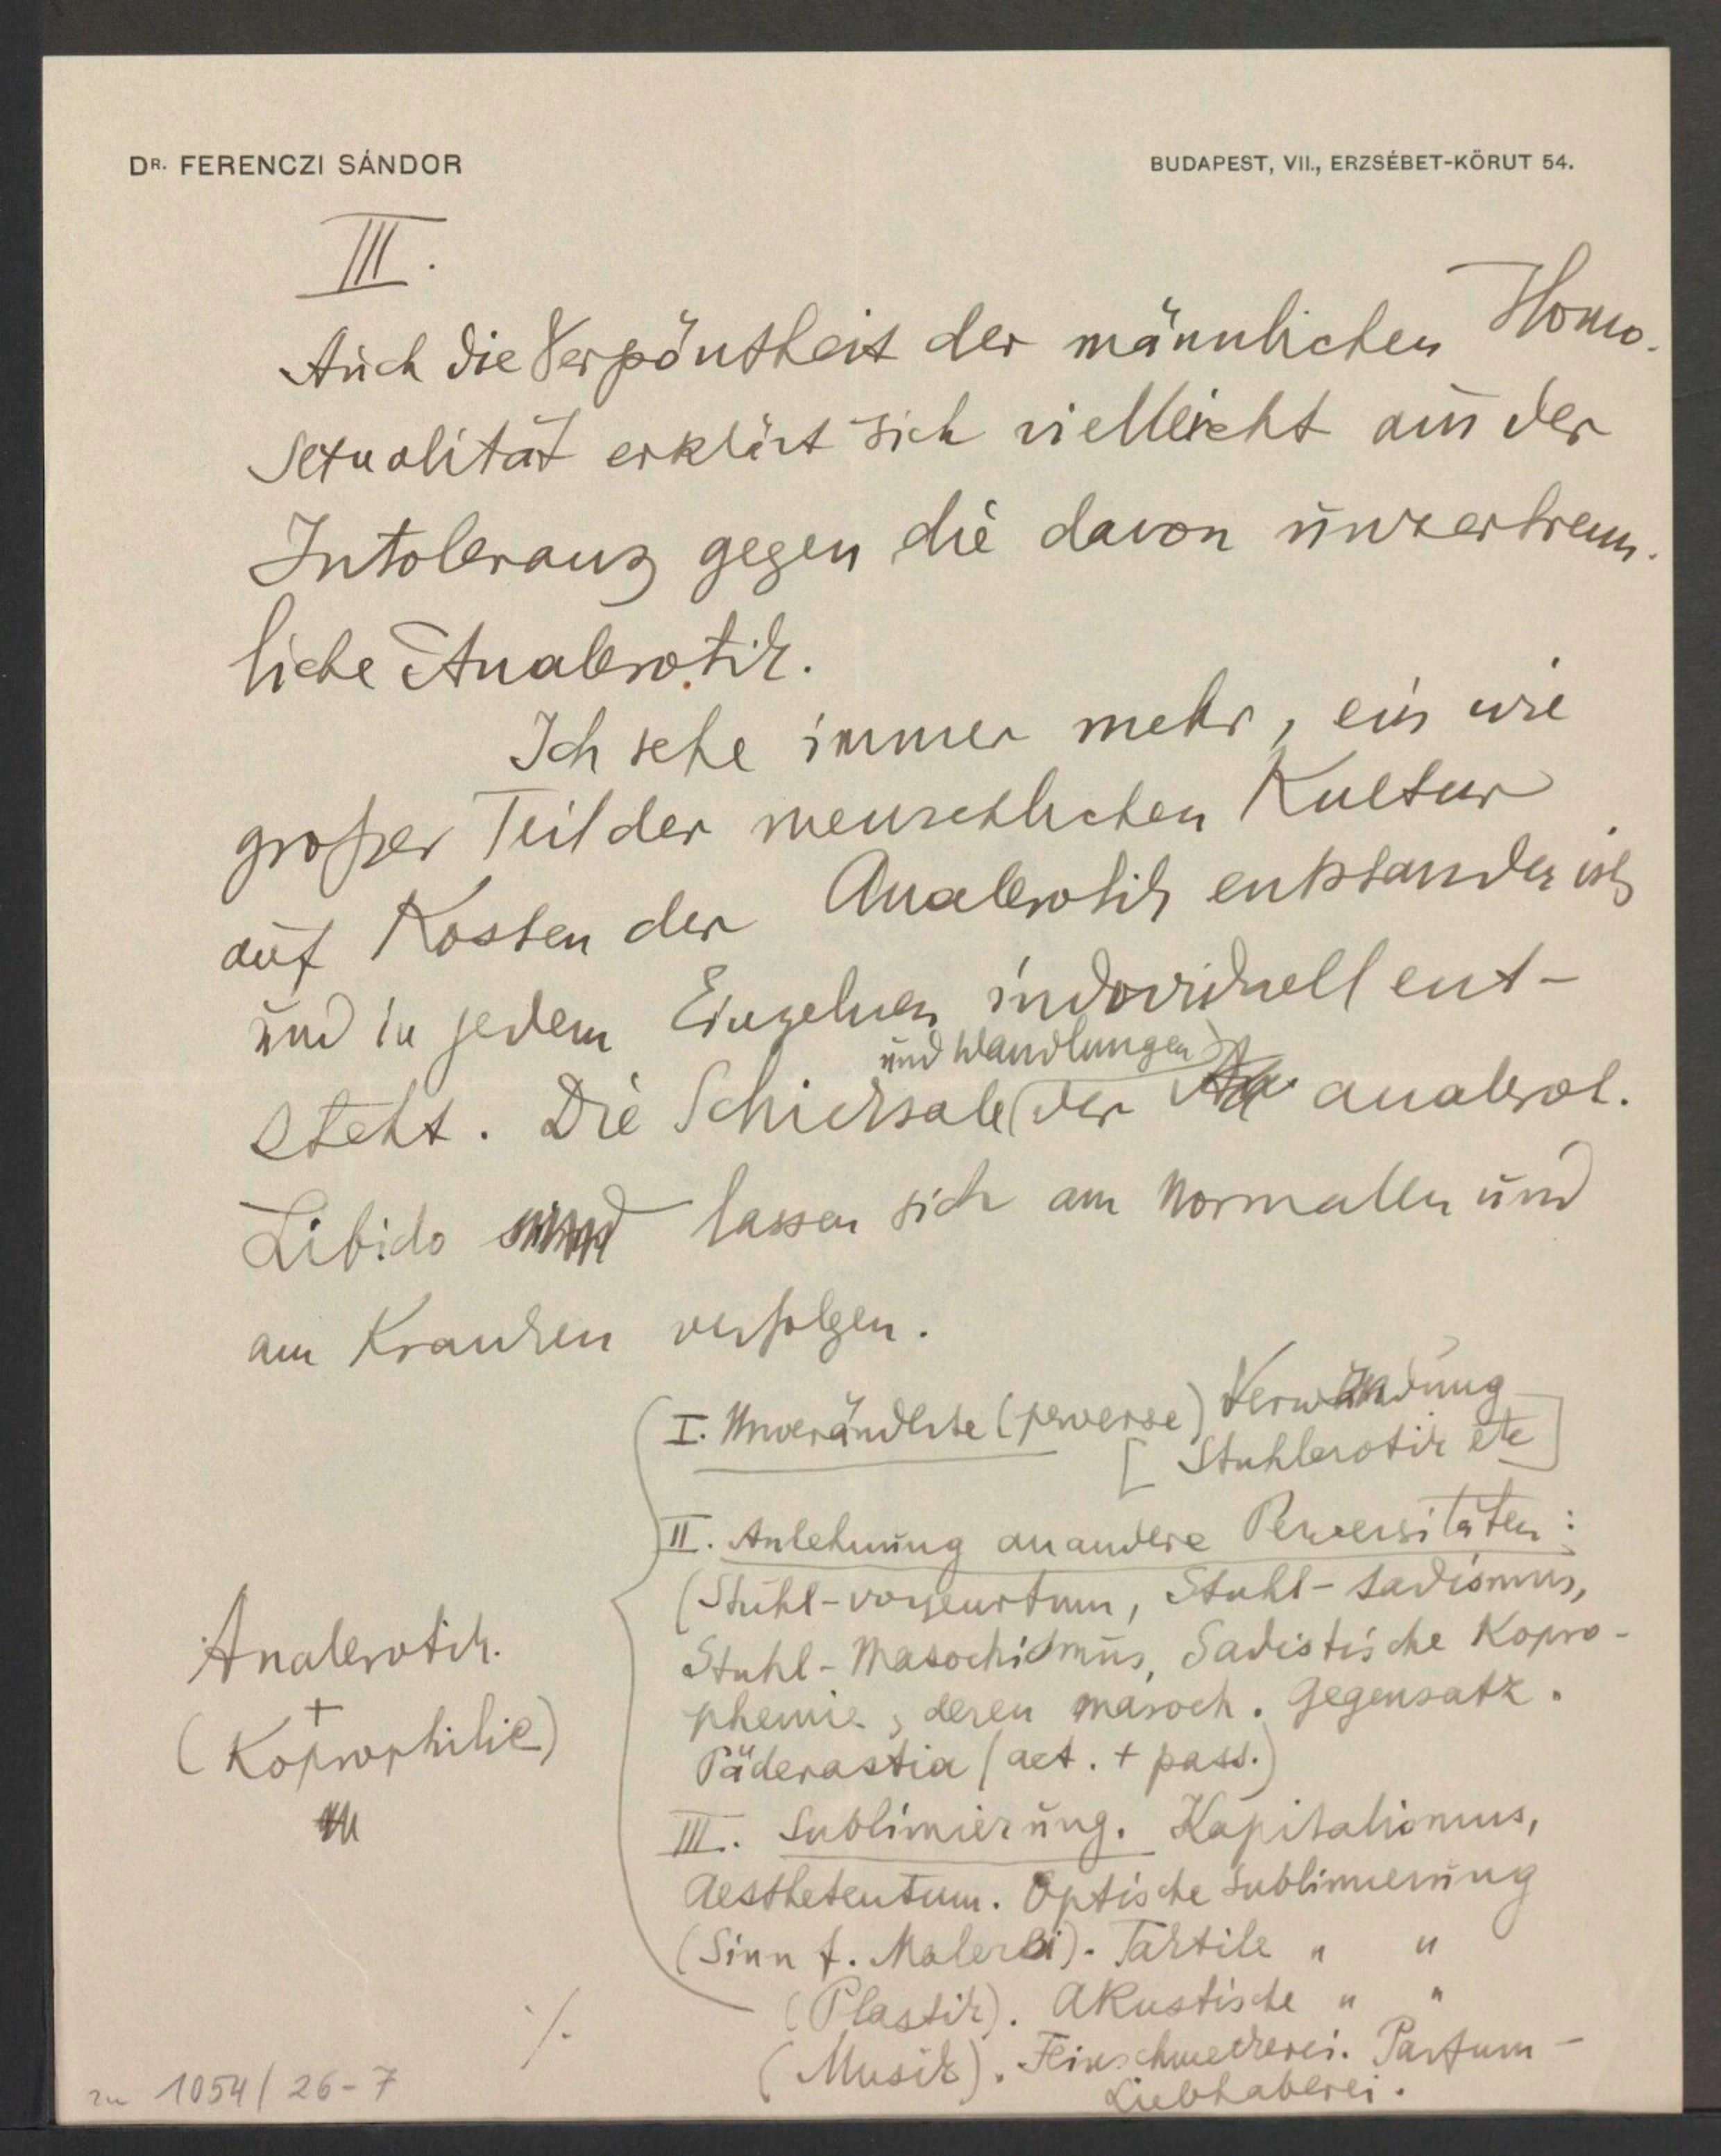 DR. FERENCZI SÁNDOR
BUDAPEST, VII., ERZSÉBET-KÖRUT 54.
III.
Auch die Verpöntheit der männlichen Homo-
sexualität erklärt sich vielleicht aus der
Intoleranz gegen die davon unzertrenn-
liche Analerotik.
Ich sehe immer mehr, ein wie
großer Teil der menschlichen Kultur
auf Kosten der Analerotik entstanden ist
und in jedem Einzelnen individuell ent-
und Wandlungen
steht. Die Schicksale der analerot.
Libido lassen sich am Normalen und
am Kranken verfolgen.
I. Unveränderte (perverse) Verwendung
[Stuhlerotik etc]
II. Anlehnung an andere Perversitäten:
(Stuhl-voyeurtum, Stuhl-sadismus,
Stuhl-Masochismus, Sadistische Kopro-
phemie, deren masoch. Gegensatz.
Päderastia (act. + pass.)
III. Sublimierung. Kapitalismus,
Aesthetentum. Optische Sublimierung
(Sinn f. Malerei). Taktile " "
(Plastik). Akustische " "
(Musik). Feinschmeckerei. Parfum-
Liebhaberei.
Analerotik.
+
(Koprophilie)
./.
zu 1054/26-7